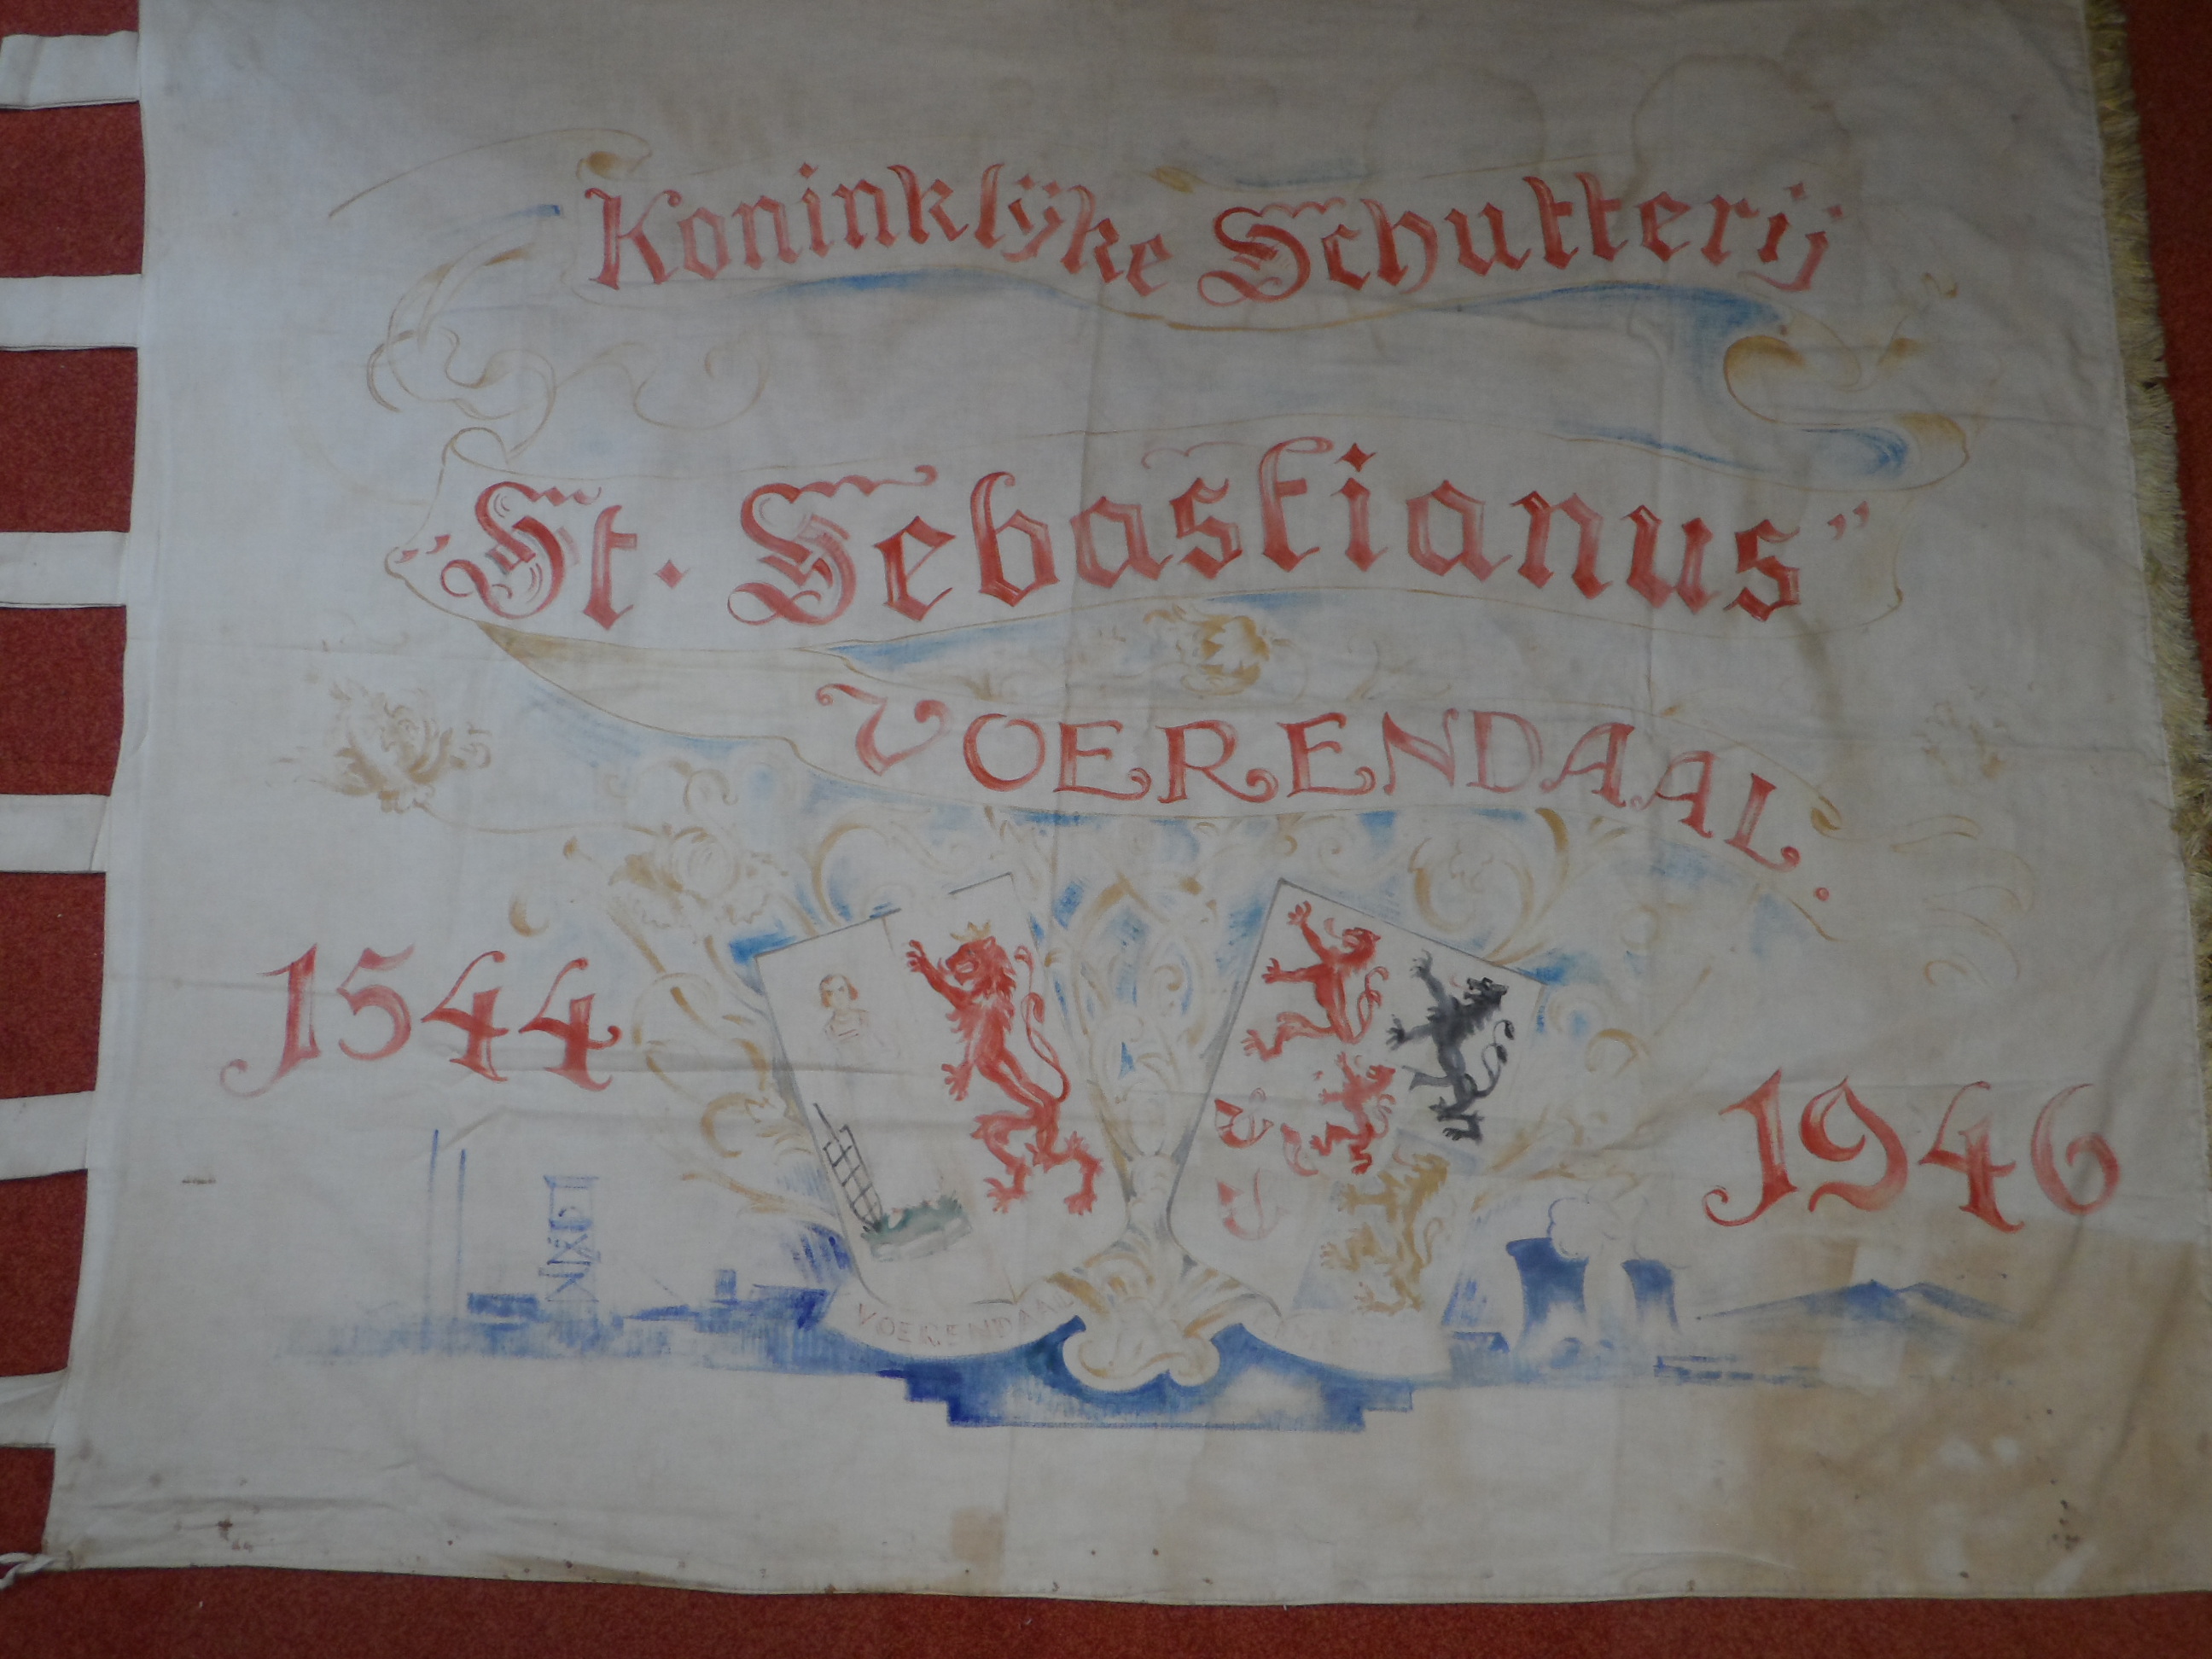 Koninklijke Schutterij
"St. Sebastianus"
VOERENDAAL.
1544
1946
VOERENDAAL